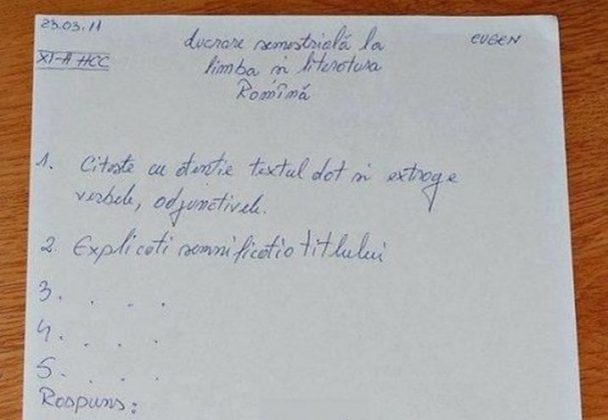 23.03.11
EUGEN
XI-A HCC
Lucrare semestrială la
limba si literatura
Romînă
1. Citeste cu atentie textul dat si extrage
verbele, adjunctivele.
2. Explicati semnificatia titlului
3. . . . .
4. . . . .
5. . . . .
Raspuns: